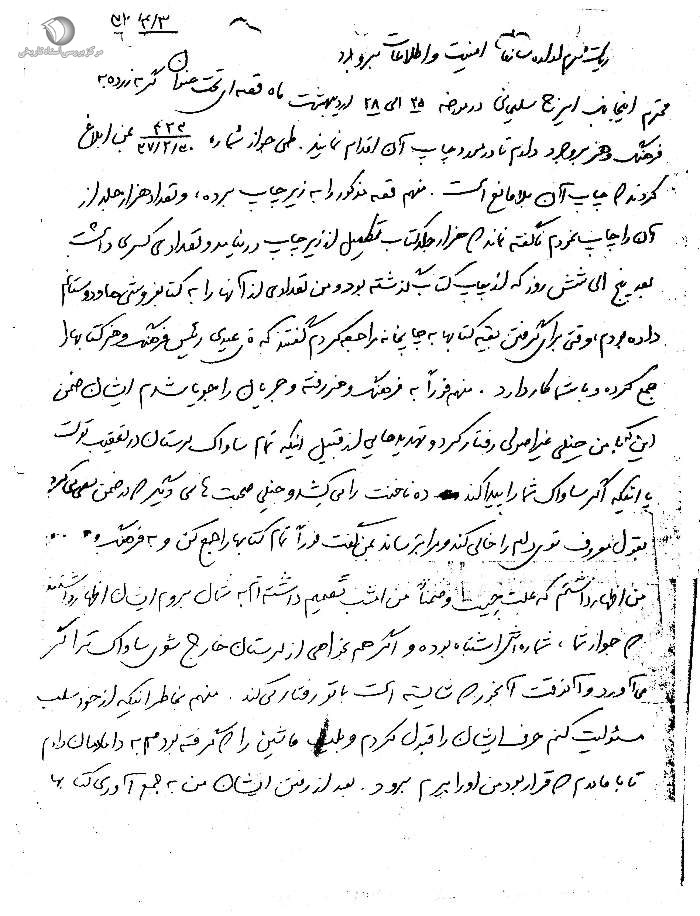 ۳۷/۴/۳
مرکز بررسی اسناد تاریخی
ریاست محترم اداره سازمان امنیت و اطلاعات بروجرد
محترم اینجانب ایرج سلیمانی در مورخه ۲۵ الی ۲۸ اردیبهشت ماه قصه ای تحت عنوان گر به
فرهنگ و هنر بروجرد دادم تا در مورد چاپ آن اقدام نمایند. طی جواز شماره ۴۲۳ ۳۷/۲/۳۰ بمن ابلاغ
کردند که چاپ آن بلامانع است. منهم قصه مذکور را به زیر چاپ برده، و تعداد هزار جلد از
آن را چاپ نمودم ناگفته نماند که هزار جلد کتاب تکمیل از زیر چاپ در نیامد و تعدادی کسری داشت
بعد پنج الی شش روز که از چاپ کتاب گذشته بود و من تعدادی از آنها را به کتابفروشی ها و دوستانم
داده بودم، وقتی برای گرفتن بقیه کتابها به چاپخانه مراجعه کردم گفتند که عیدی رئیس فرهنگ و هنر کتابها را
جمع کرده و با شما کار دارد. منهم فوراً به فرهنگ و هنر رفته و جریان را جویا شدم ایشان ضمن
این که با من خیلی غیر اصولی رفتار کرد و تهدیدهایی از قبیل اینکه تمام ساواک لرستان در تعقیب توست
یا اینکه اگر ساواک شما را پیدا کند ده ناخنت را می کشد و خیلی صحبت های دیگر که در ضمن سعی می کرد
بقول معروف توی دلم را خالی کند و مرا بترساند بمن گفت فوراً تمام کتابها را جمع کن و به فرهنگ و ....
من اظهار داشتم که علت چیست و ضمناً من امشب تصمیم داشته ام به شمال بروم ایشان اظهار داشتند
که جواز شما، شماره اش اشتباه بوده و اگر هم بخواهی از لرستان خارج شوی ساواک ترا گیر
می آورد و آنوقت آنجور که شایسته است با تو رفتار می کند. منهم بخاطر اینکه از خود سلب
مسئولیت کنم حرف ایشان را قبول کردم و بلیط ماشین را که گرفته بودم به دامادمان دادم
تا با مادرم که قرار بود من او را ببرم برود. بعد از رفتن ایشان من به جمع آوری کتابها